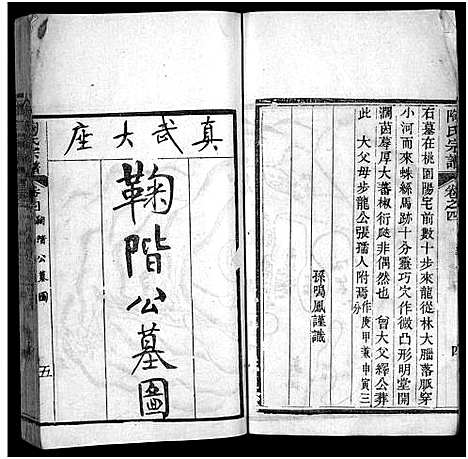 陶氏宗譜
卷之四
四
石墓在桃園陽宅前數十步來龍從林大腦落脈穿
小河而來蛛絲馬跡十分靈巧穴作微凸形明堂開
濶茵蓐厚大蕃椒衍非偶然也　曾大父繹公葬
此　大父母步龍公張孺人附焉作庚甲兼申寅三分
孫鳴鳳謹識
真武大座
鞠階公墓圖
卷四
鞠階公墓圖
五